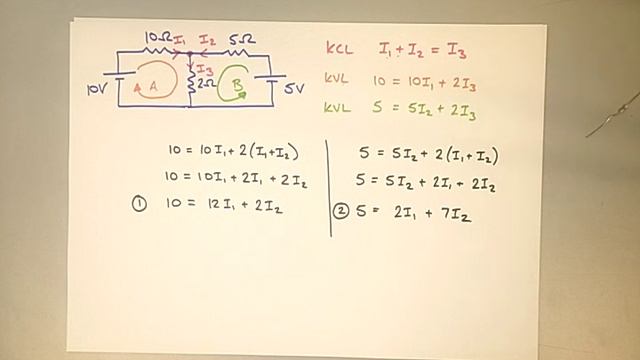 10Ω I₁ I₂ 5Ω
I₃
10V A 2Ω B 5V
KCL I₁ + I₂ = I₃
KVL 10 = 10I₁ + 2I₃
KVL 5 = 5I₂ + 2I₃
10 = 10I₁ + 2(I₁+I₂)
10 = 10I₁ + 2I₁ + 2I₂
① 10 = 12I₁ + 2I₂
5 = 5I₂ + 2(I₁+I₂)
5 = 5I₂ + 2I₁ + 2I₂
② 5 = 2I₁ + 7I₂